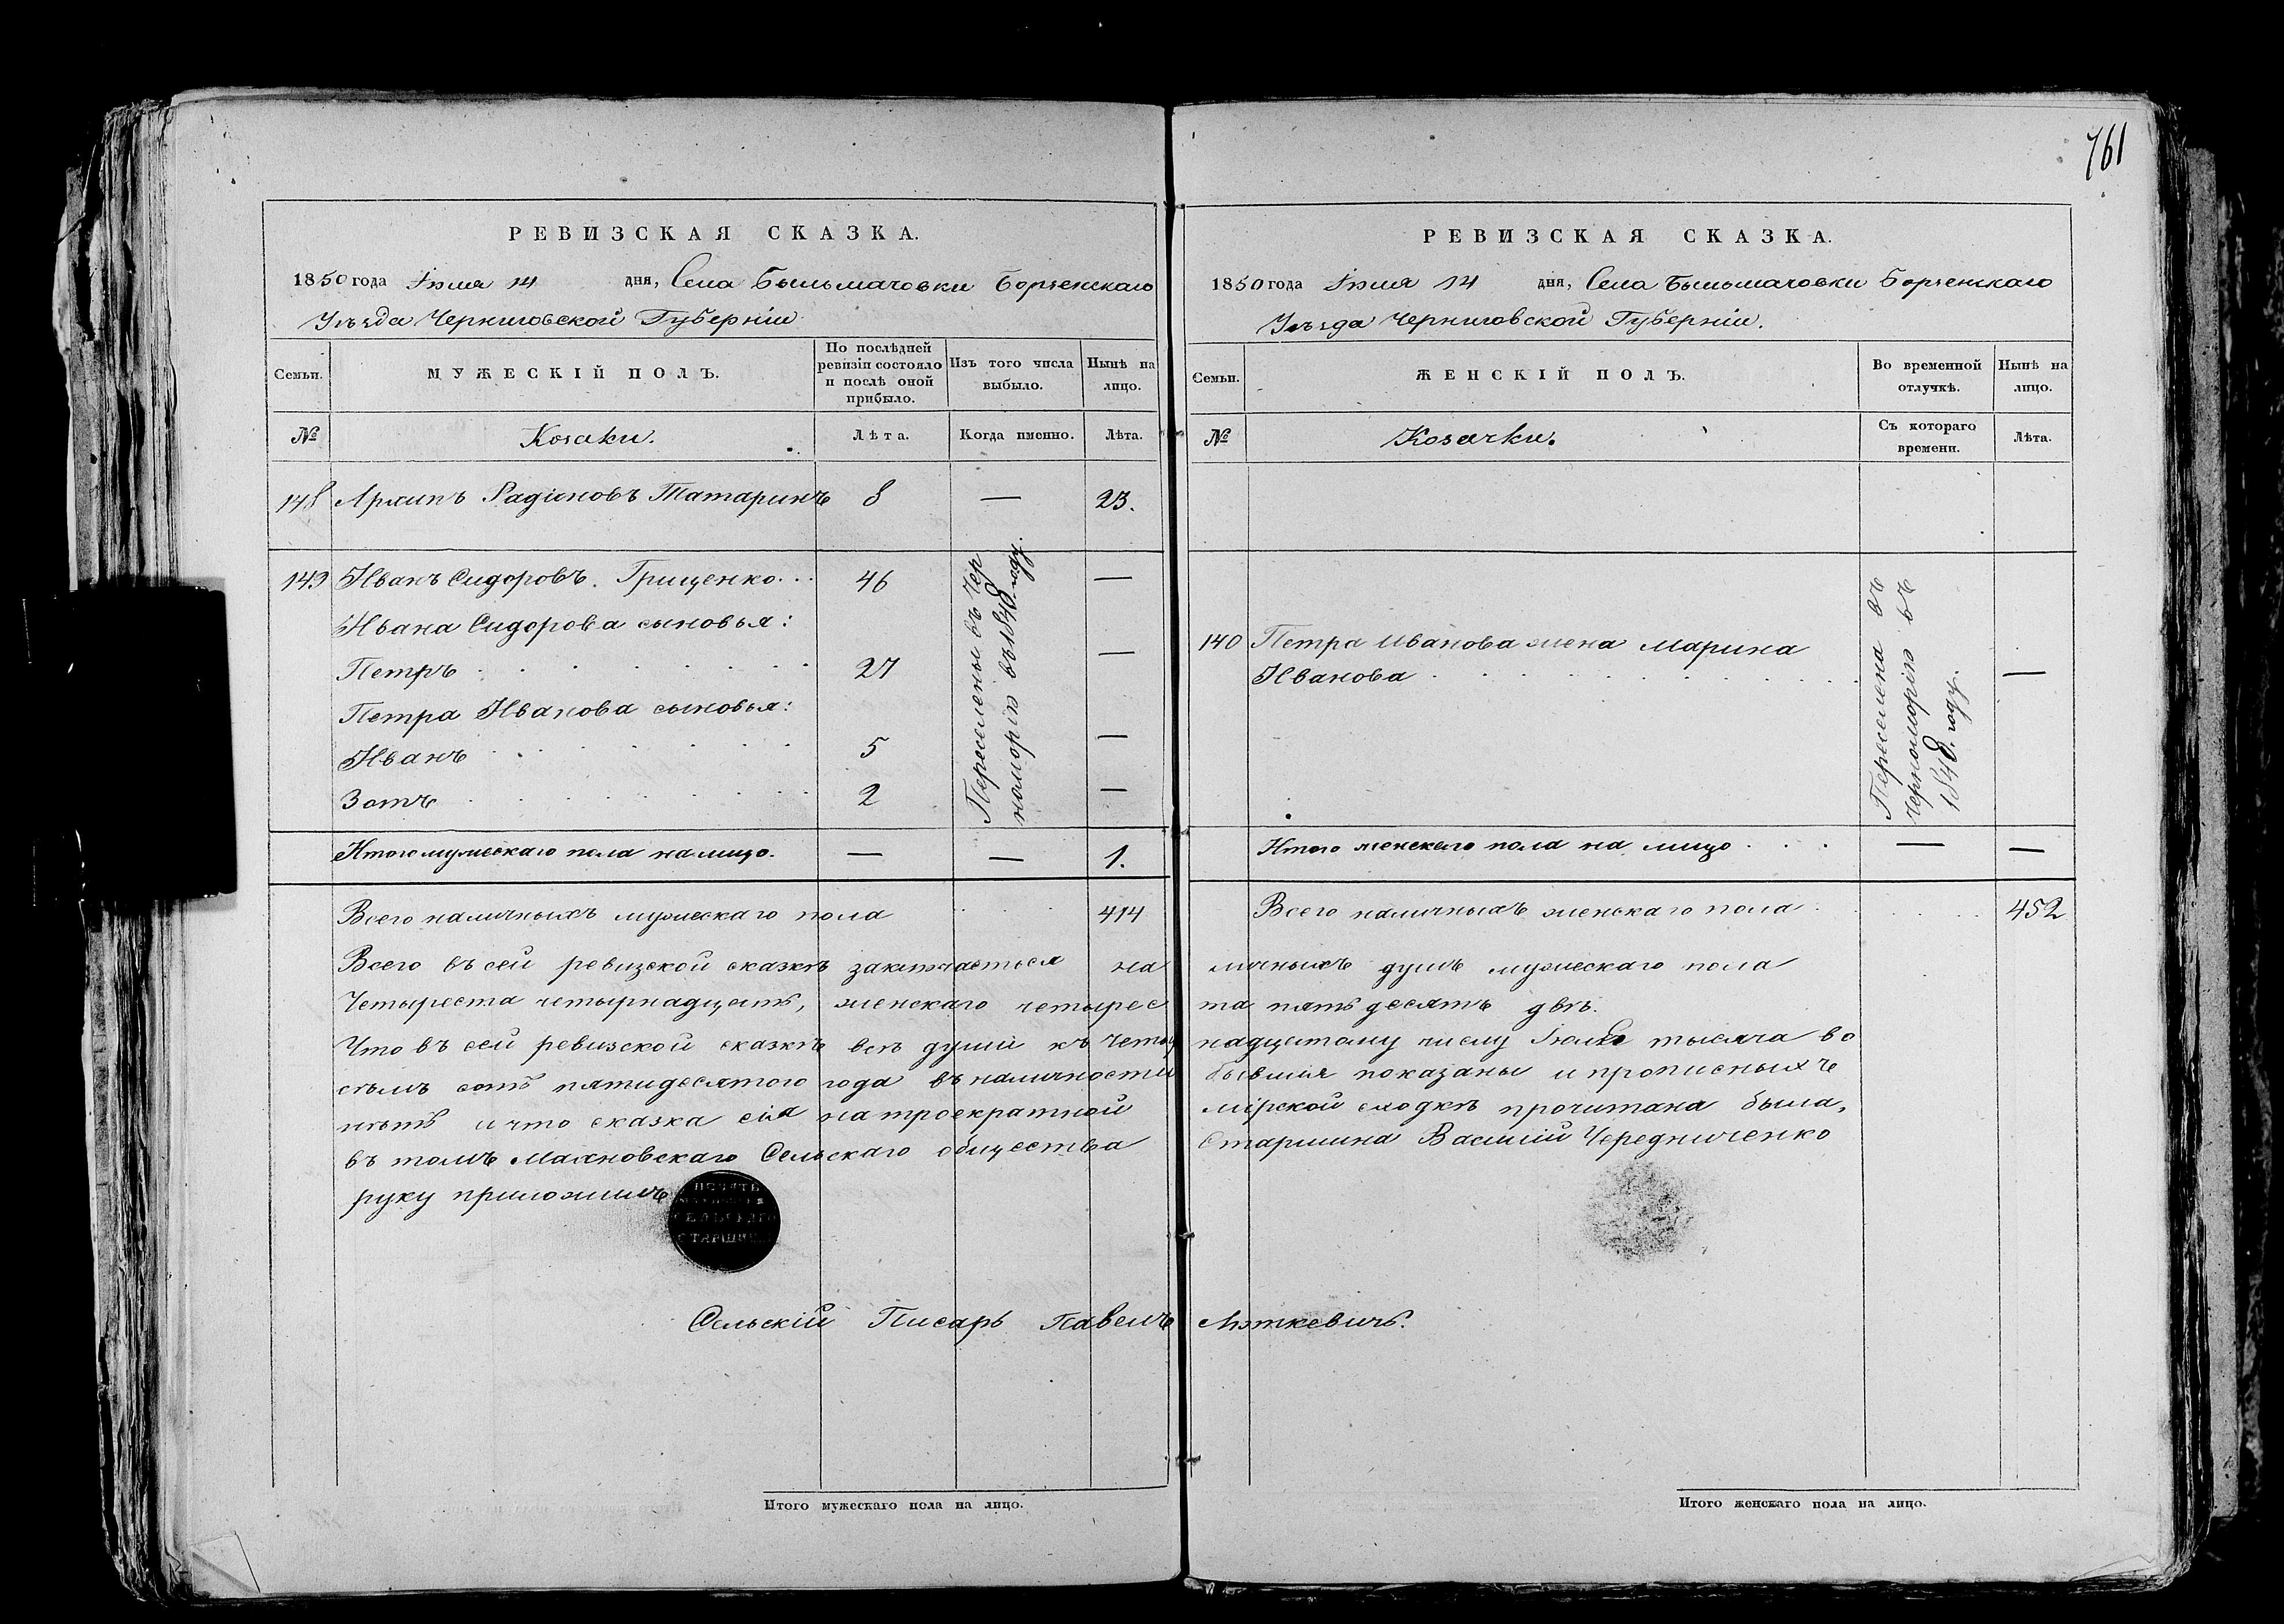 761
РЕВИЗСКАЯ СКАЗКА.
1850 года Іюля 14 дня, Села Быльмачовки Борзенскаго
Уѣзда Черниговской Губерніи
Семьи.
МУЖЕСКІЙ ПОЛЪ.
По послѣдней ревизіи состояло и послѣ оной прибыло.
Изъ того числа выбыло.
Нынѣ на лицо.
№
Козаки.
Лѣта.
Когда именно.
Лѣта.
148 Архипъ Радіоновъ Татаринъ 8 — 23.
149 Иванъ Сидоровъ Грищенко 46 —
Ивана Сидорова сыновья:
Петръ 27 —
Петра Иванова сыновья:
Иванъ 5 —
Зотъ 2 —
Переселены въ Чер
номорію въ 1848 году.
Итого мужескаго пола на лицо. — — 1.
Всего наличныхъ мужескаго пола 414
РЕВИЗСКАЯ СКАЗКА.
1850 года Іюля 14 дня, Села Быльмачовки Борзенскаго
Уѣзда Черниговской Губерніи.
Семьи.
ЖЕНСКІЙ ПОЛЪ.
Во временной отлучкѣ.
Нынѣ на лицо.
№
Козачки.
Съ котораго времени.
Лѣта.
140 Петра Иванова жена Марина
Иванова —
Переселена въ
Черноморію въ
1848 году.
Итого женскаго пола на лицо — —
Всего наличныхъ женскаго пола 452
Всего въ сей ревизской сказкѣ заключается наличныхъ душъ мужескаго пола
Четыреста четырнадцать, женскаго четыреста пятьдесятъ двѣ.
Что въ сей ревизской сказкѣ всѣ души къ четырнадцатому числу Іюля тысяча во
сѣмъ сотъ пятидесятого года въ наличности бывшія показаны и прописныхъ
нѣтъ и что сказка сія на троекратной мірской сходкѣ прочитана была,
въ томъ Махновскаго Сельскаго общества Старшина Василій Чередниченко
руку приложилъ
ПЕЧАТЬ
СЕЛЬСКАГО
СТАРШИНЫ
Сельскій Писарь Павелъ Люткевичъ.
Итого мужескаго пола на лицо.
Итого женскаго пола на лицо.